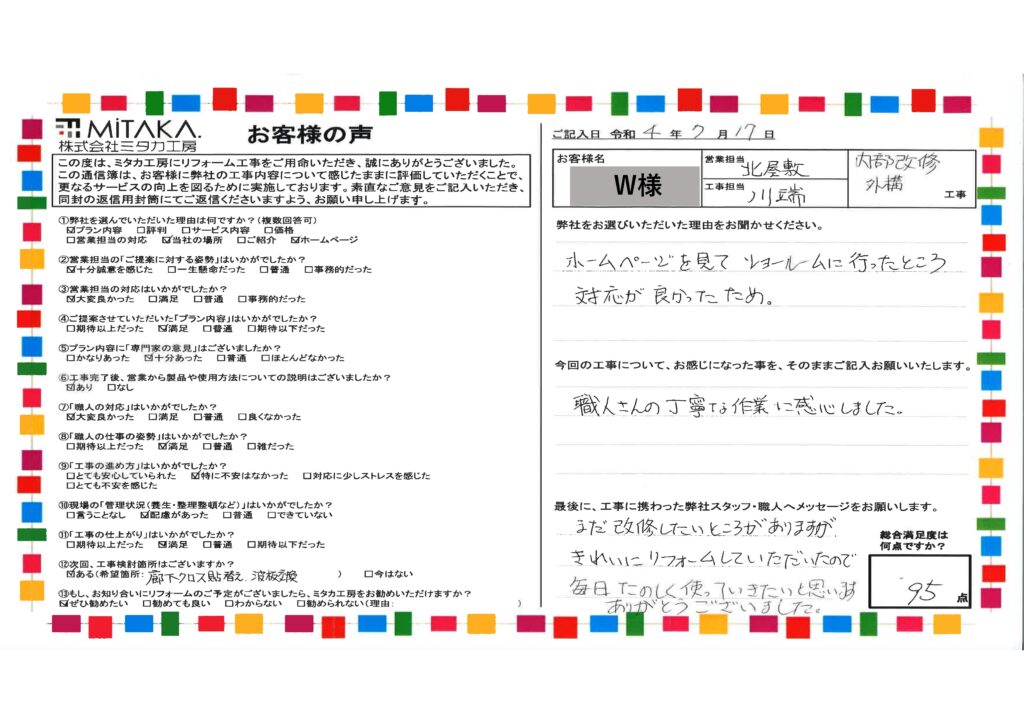 MiTAKA.
株式会社ミタカ工房
お客様の声
この度は、ミタカ工房にリフォーム工事をご用命いただき、誠にありがとうございました。
この通信簿は、お客様に弊社の工事内容について感じたままに評価していただくことで、
更なるサービスの向上を図るために実施しております。素直なご意見をご記入いただき、
同封の返信用封筒にてご返信くださいますよう、お願い申し上げます。
①弊社を選んでいただいた理由は何ですか?(複数回答可)
☑プラン内容 □評判 □サービス内容 □価格
□営業担当の対応 ☑当社の場所 □ご紹介 ☑ホームページ
②営業担当の「ご提案に対する姿勢」はいかがでしたか?
☑十分誠意を感じた □一生懸命だった □普通 □事務的だった
③営業担当の対応はいかがでしたか?
☑大変良かった □満足 □普通 □事務的だった
④ご提案させていただいた「プラン内容」はいかがでしたか?
□期待以上だった ☑満足 □普通 □期待以下だった
⑤プラン内容に「専門家の意見」はございましたか?
□かなりあった ☑十分あった □普通 □ほとんどなかった
⑥工事完了後、営業から製品や使用方法についての説明はございましたか?
☑あり □なし
⑦「職人の対応」はいかがでしたか?
☑大変良かった □満足 □普通 □良くなかった
⑧「職人の仕事の姿勢」はいかがでしたか?
□期待以上だった ☑満足 □普通 □雑だった
⑨「工事の進め方」はいかがでしたか?
□とても安心していられた ☑特に不安はなかった □対応に少しストレスを感じた
□とても不安を感じた
⑩現場の「管理状況(養生・整理整頓など)」はいかがでしたか?
□言うことなし ☑配慮があった □普通 □できていない
⑪「工事の仕上がり」はいかがでしたか?
□期待以上だった ☑満足 □普通 □期待以下だった
⑫次回、工事検討箇所はございますか?
☑ある(希望箇所: 廊下クロス貼替え 波板交換 ) □今はない
⑬もし、お知り合いにリフォームのご予定がございましたら、ミタカ工房をお勧めいただけますか?
☑ぜひ勧めたい □勧めても良い □わからない □勧められない(理由: )
ご記入日 令和 4 年 7 月 17 日
お客様名 W様
営業担当 北屋敷
工事担当 川端
内部改修
外構 工事
弊社をお選びいただいた理由をお聞かせください。
ホームページを見て ショールームに行ったところ
対応が良かったため。
今回の工事について、お感じになった事を、そのままご記入お願いいたします。
職人さんの丁寧な作業に感心しました。
最後に、工事に携わった弊社スタッフ・職人へメッセージをお願いします。
まだ改修したいところがありますが
きれいにリフォームしていただいたので
毎日たのしく使っていきたいと思います
ありがとうございました。
総合満足度は
何点ですか?
95 点